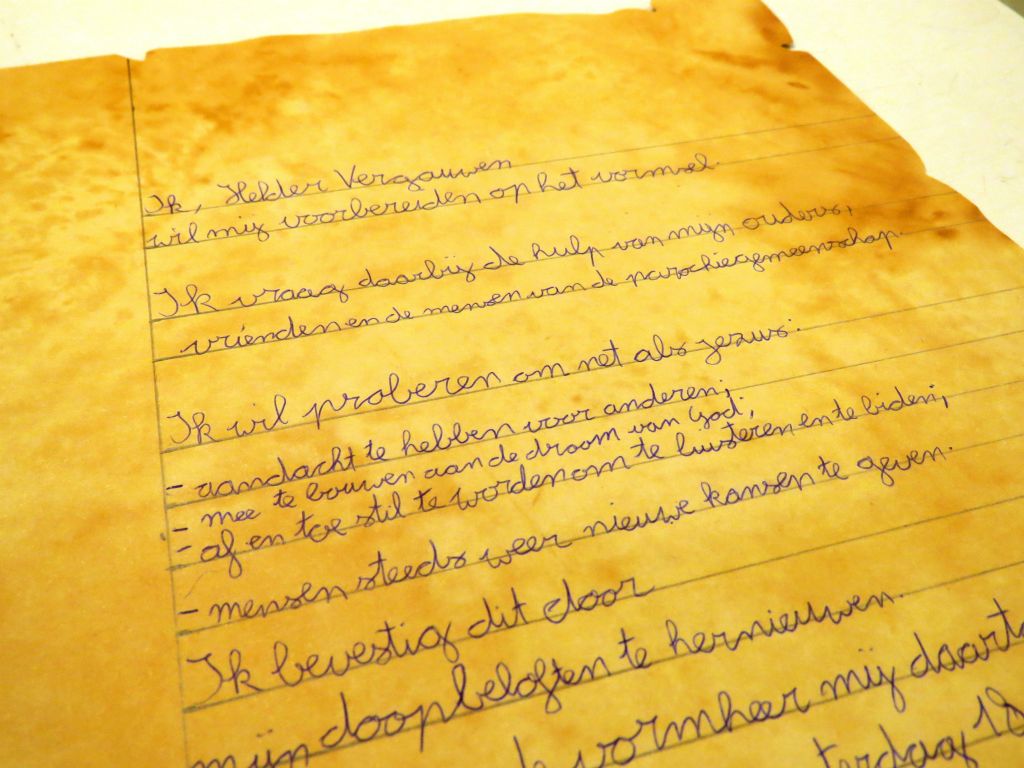 Ik, Helder Vergauwen
wil mij voorbereiden op het vormsel.
Ik vraag daarbij de hulp van mijn ouders,
vrienden en de mensen van de parochiegemeenschap.
Ik wil proberen om net als jezus:
- aandacht te hebben voor anderen;
- mee te bouwen aan de droom van God;
- af en toe stil te worden om te luisteren en te biden;
- mensen steeds weer nieuwe kansen te geven.
Ik bevestig dit door
mijn doopbeloften te hernieuwen.
vormheer mij daart
terdag 18